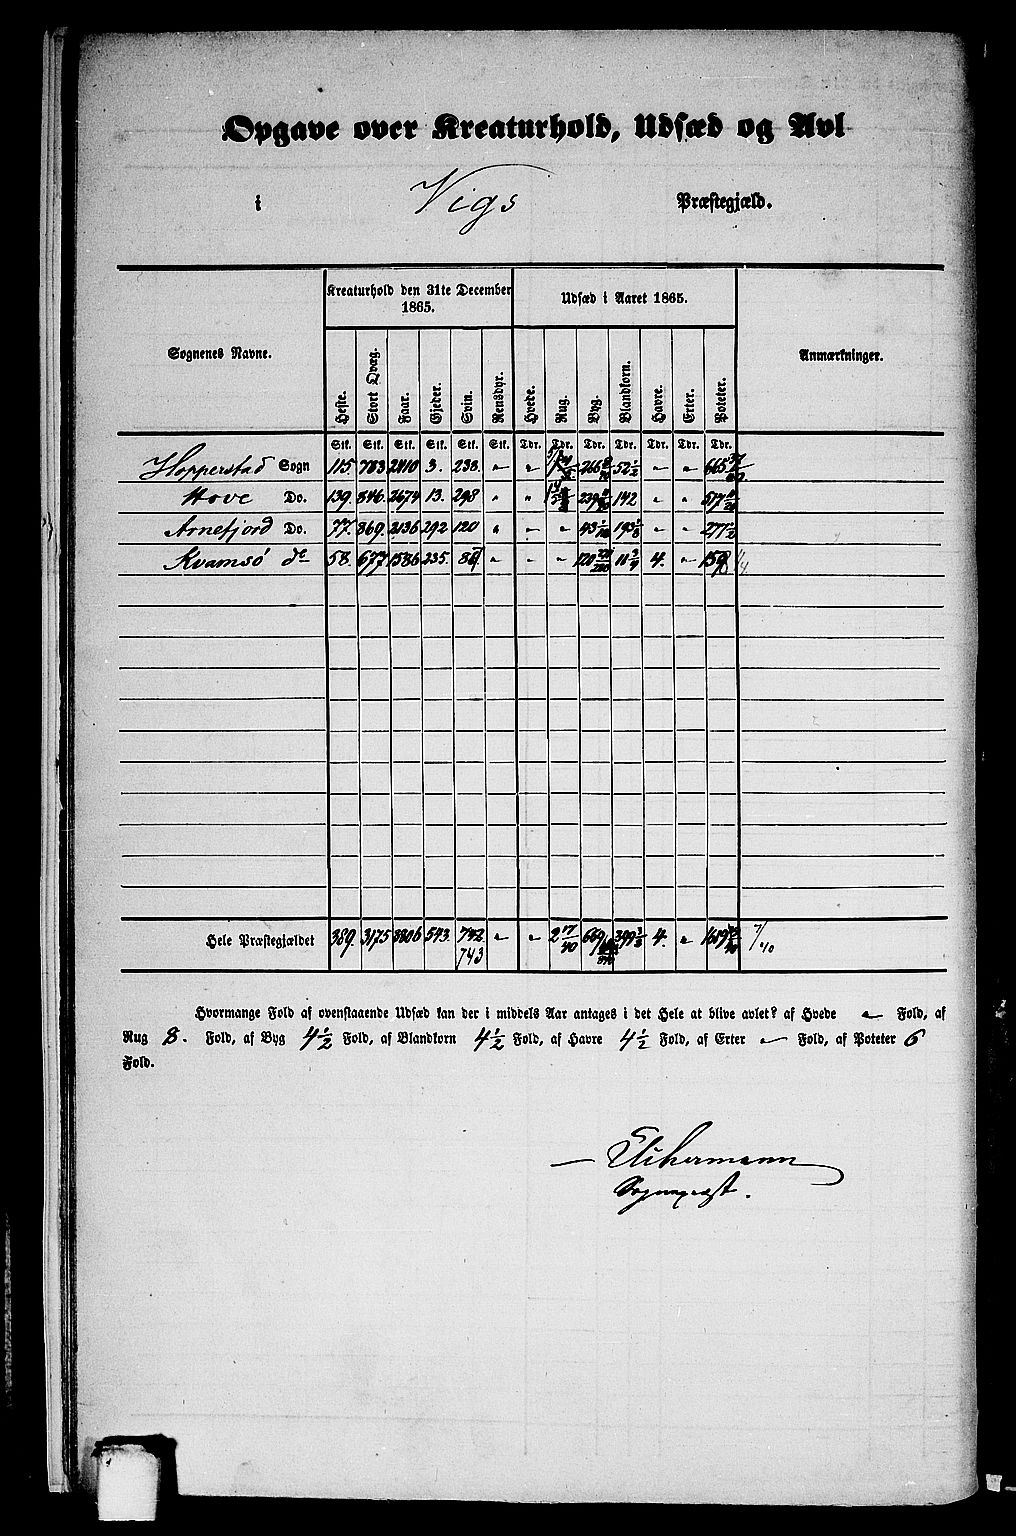 Opgave over Kreaturhold, Udsæd og Avl
i Vigs Præstegjæld.
Sognenes Navne. Kreaturhold den 31te December 1865. Udsæd i Aaret 1865. Anmærkninger.
Heste. Stort Qvæg. Faar. Gjeder. Svin. Rensdyr. Hvede. Rug. Byg. Blandkorn. Havre. Erter. Poteter.
Stk. Stk. Stk. Stk. Stk. Stk. Tdr. Tdr. Tdr. Tdr. Tdr. Tdr. Tdr.
Hopperstad Sogn 115 783 2410 3. 238 " " 266 52 1/2 " " 665
Hove Do. 139. 846. 2674 13. 298 " " 239 142 " " 517
Arnefjord Do. 77. 869. 2136 292 120 " " " 43 1/10 193 1/8 " " 277 1/2
Kvamsø do 58. 677 1586 235. " " " 120 11 3/4 4. " 159
Hele Præstegjældet 389. 3175 8806 543. 742 " " 2 17/40 669 399 3/8 4. " 1619 7/40
743
Hvormange Fold af ovenstaaende Udsæd kan der i middels Aar antages i det Hele at blive avlet? af Hvede " Fold, af
Rug 8. Fold, af Byg 4 1/2 Fold, af Blandkorn 4 1/2 Fold, af Havre 4 1/2 Fold, af Erter " Fold, af Poteter 6
Fold.
Sognepræst.